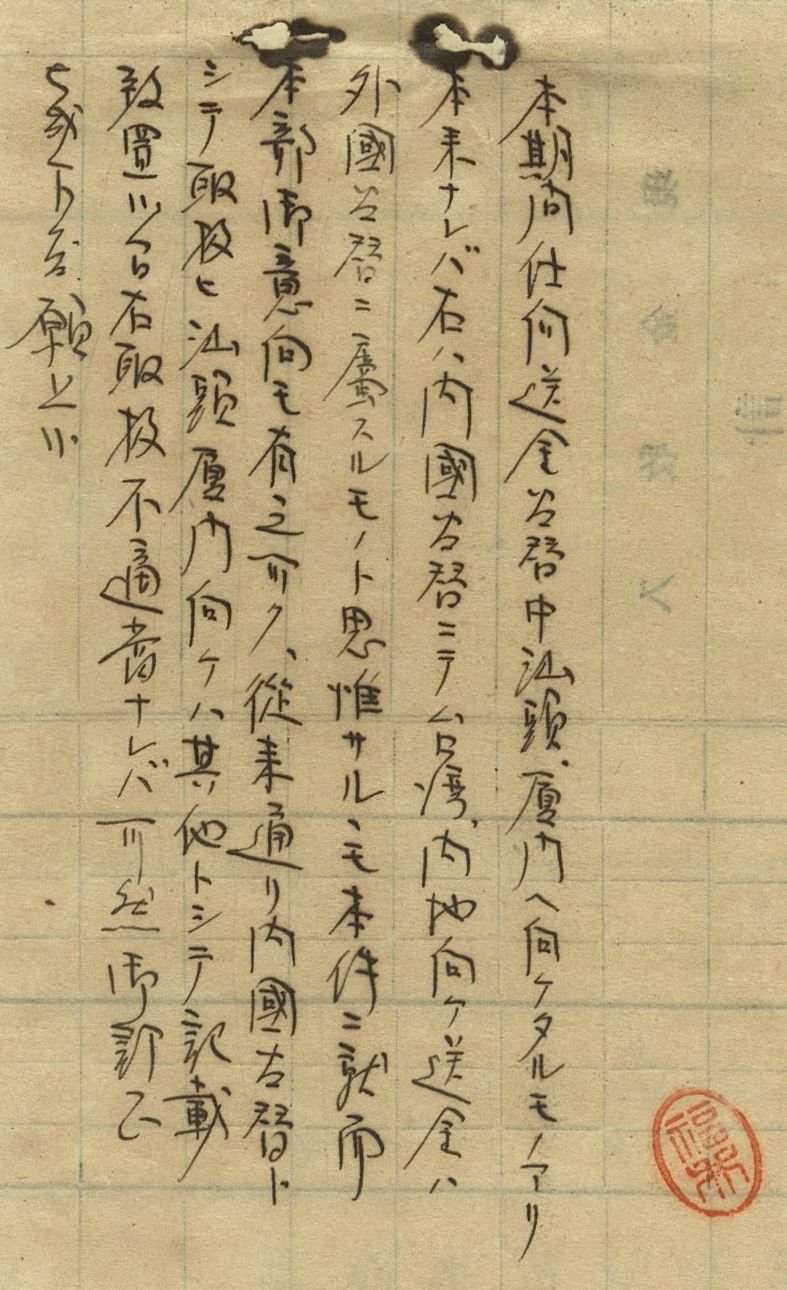 本期間仕向送金為替中汕頭、厦門ヘ向ケタルモノアリ
本来ナレバ右ハ内國為替ニテ台湾、内地向ケ送金ハ
外國為替ニ属スルモノト思惟サルヽモ本件ニ就而
本部御意向モ有之可ク、従来通リ内國為替ト
シテ取扱ヒ汕頭厦門向ケハ其他トシテ記載
致置候間右取扱不適當ナレバ可然御訂正
被成下度願上候